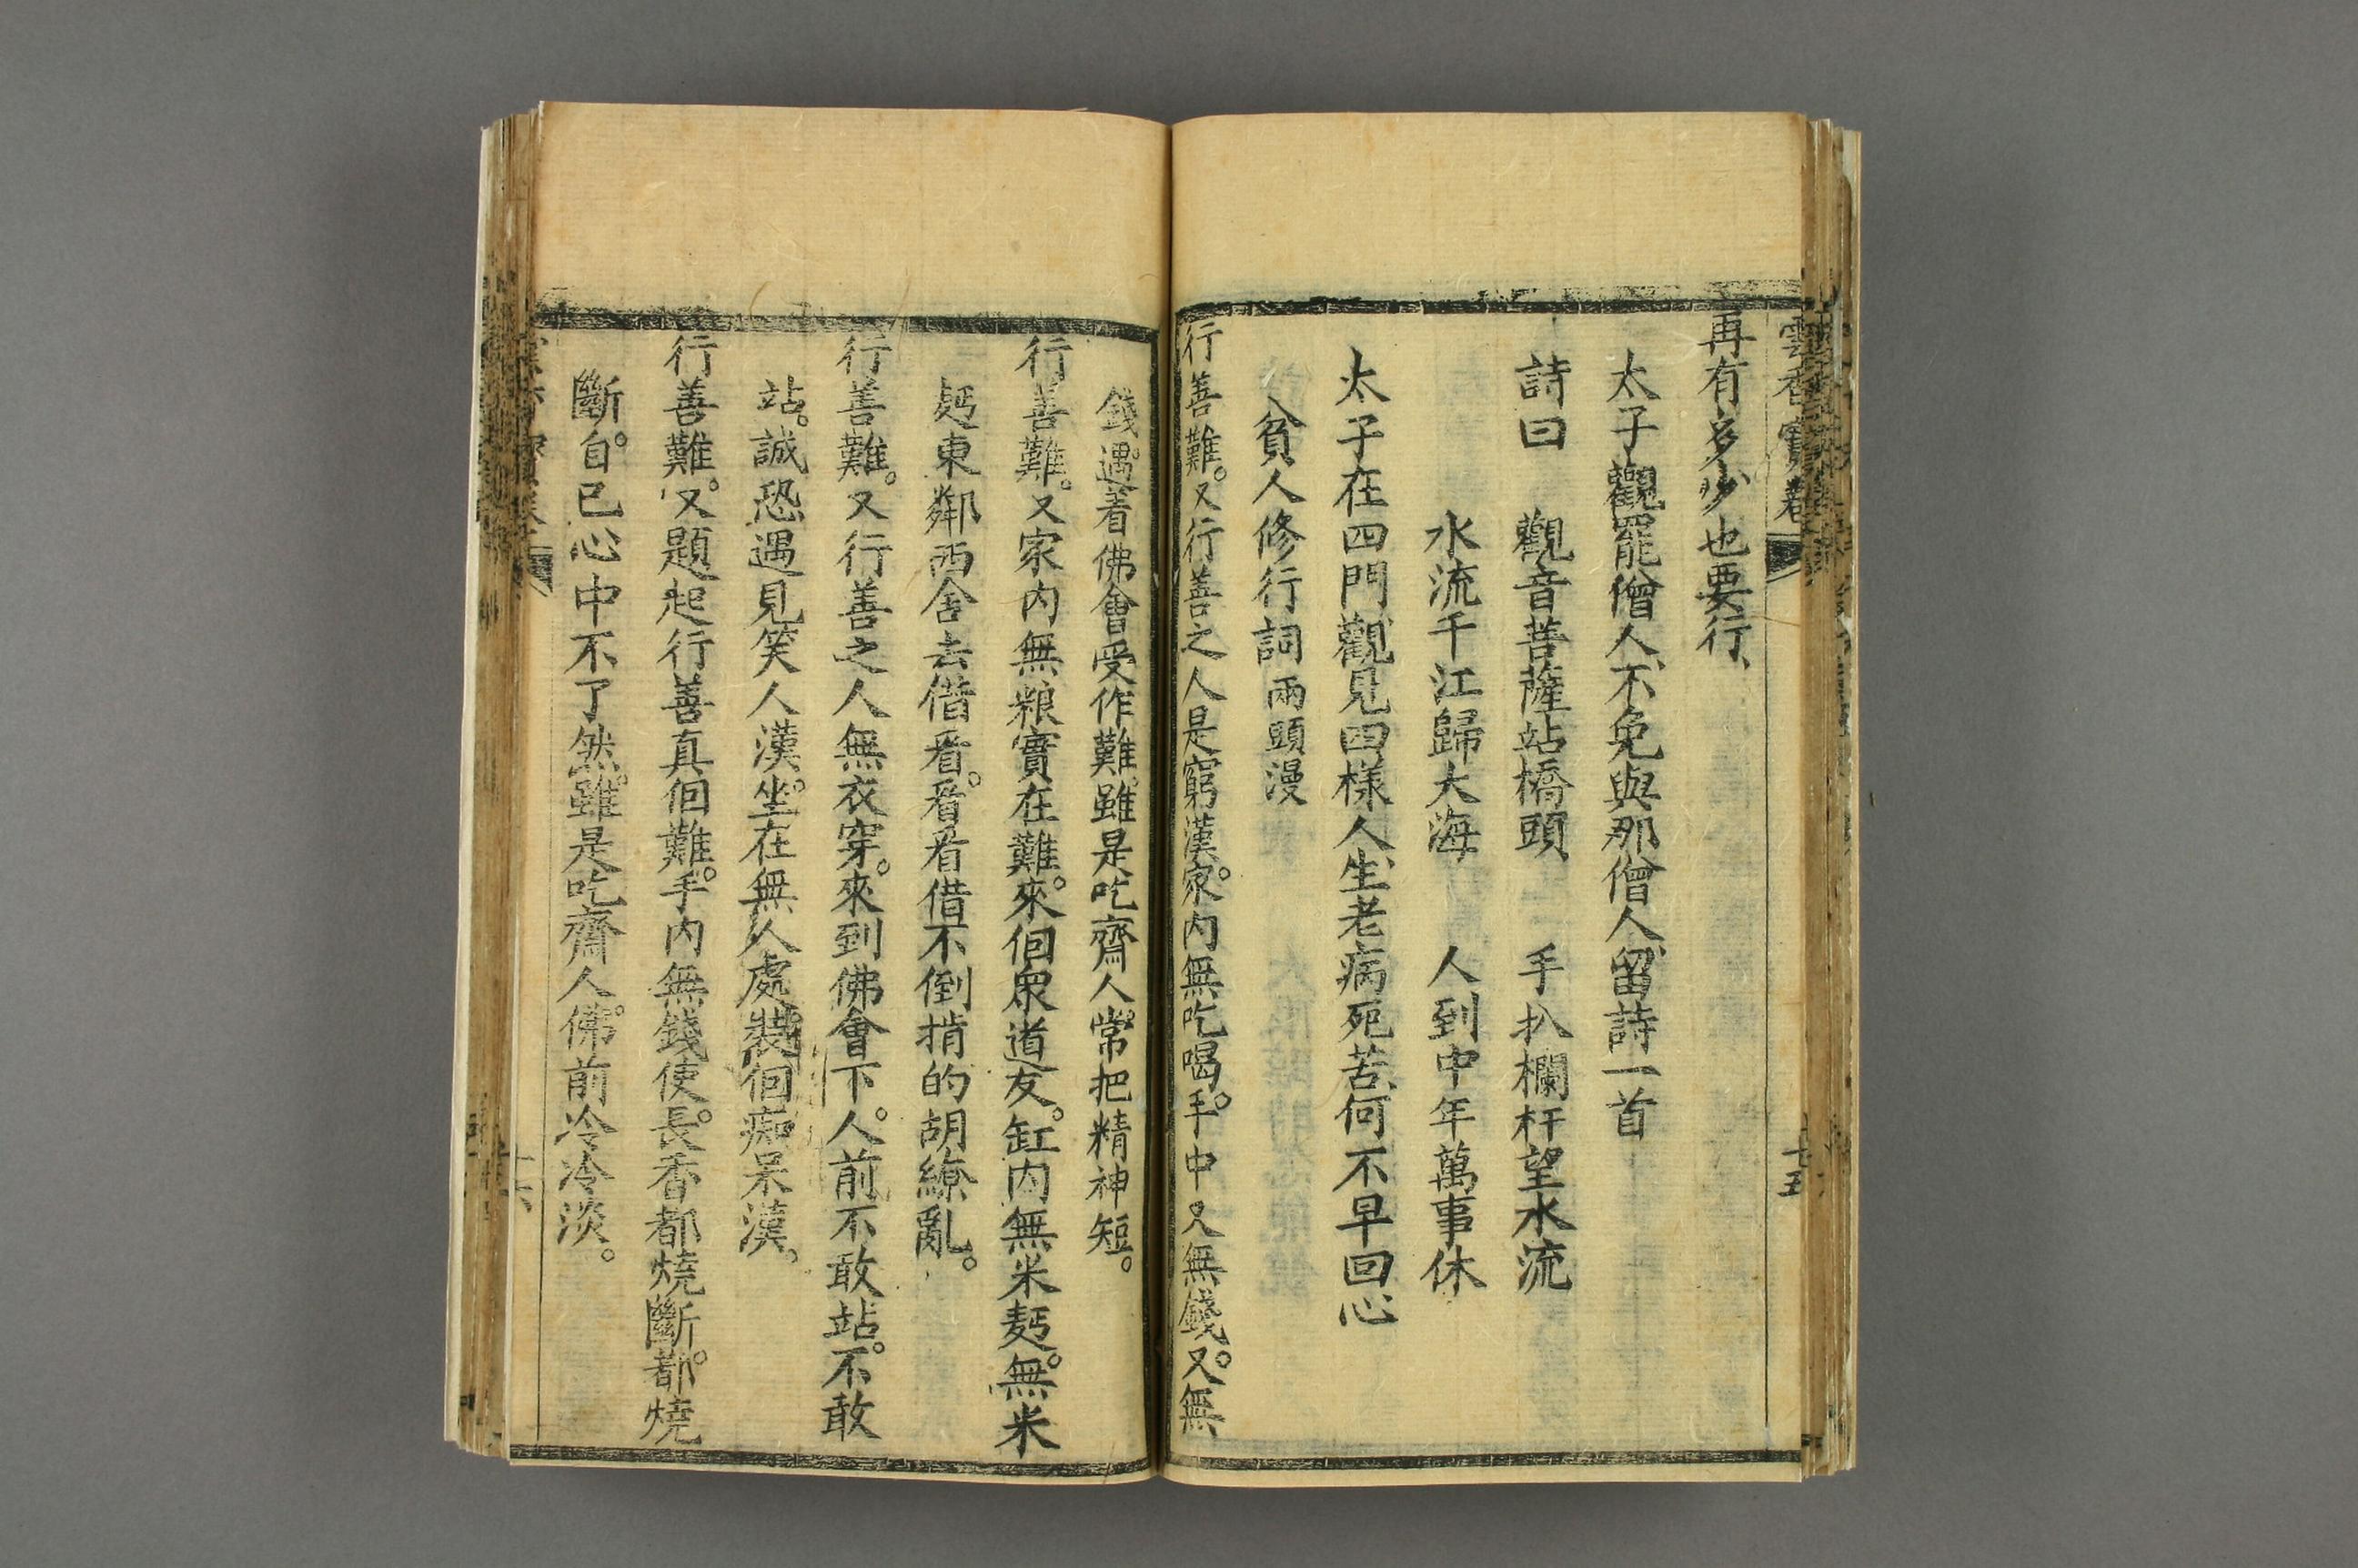 雲香寶卷
七五
再有多少也要行、
太子觀罷僧人、不免與那僧人、留詩一首
詩曰　觀音菩薩站橋頭　手扒欄杆望水流
水流千江歸大海　人到中年萬事休
太子在四門觀見四樣人、生老病死苦、何不早回心
貧人修行詞兩頭漫
行善難。又行善之人是窮漢。家內無吃喝。手中又無錢。又無
錢。遇着佛會受作難。雖是吃齋人。常把精神短。
行善難。又家內無粮實在難。來佪衆道友。缸內無米麫。無米
麫東鄰西舍去借看。看看借不倒揹的胡繚亂。
行善難。又行善之人無衣穿。來到佛會下。人前不敢站。不敢
站。誠恐遇見笑人漢。坐在無人處。裝佪痴呆漢。
行善難。又題起行善真佪難。手內無錢使。長香都燒斷。都燒
斷。自己心中不了然。雖是吃齋人。佛前冷冷淡。